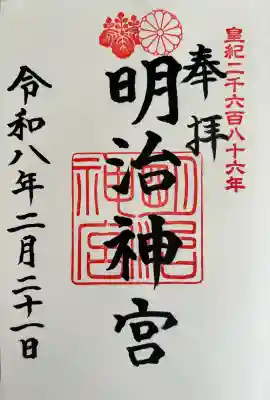 皇紀二千六百八十六年
奉拝
明治神宮
明治神宮
令和八年二月二十一日